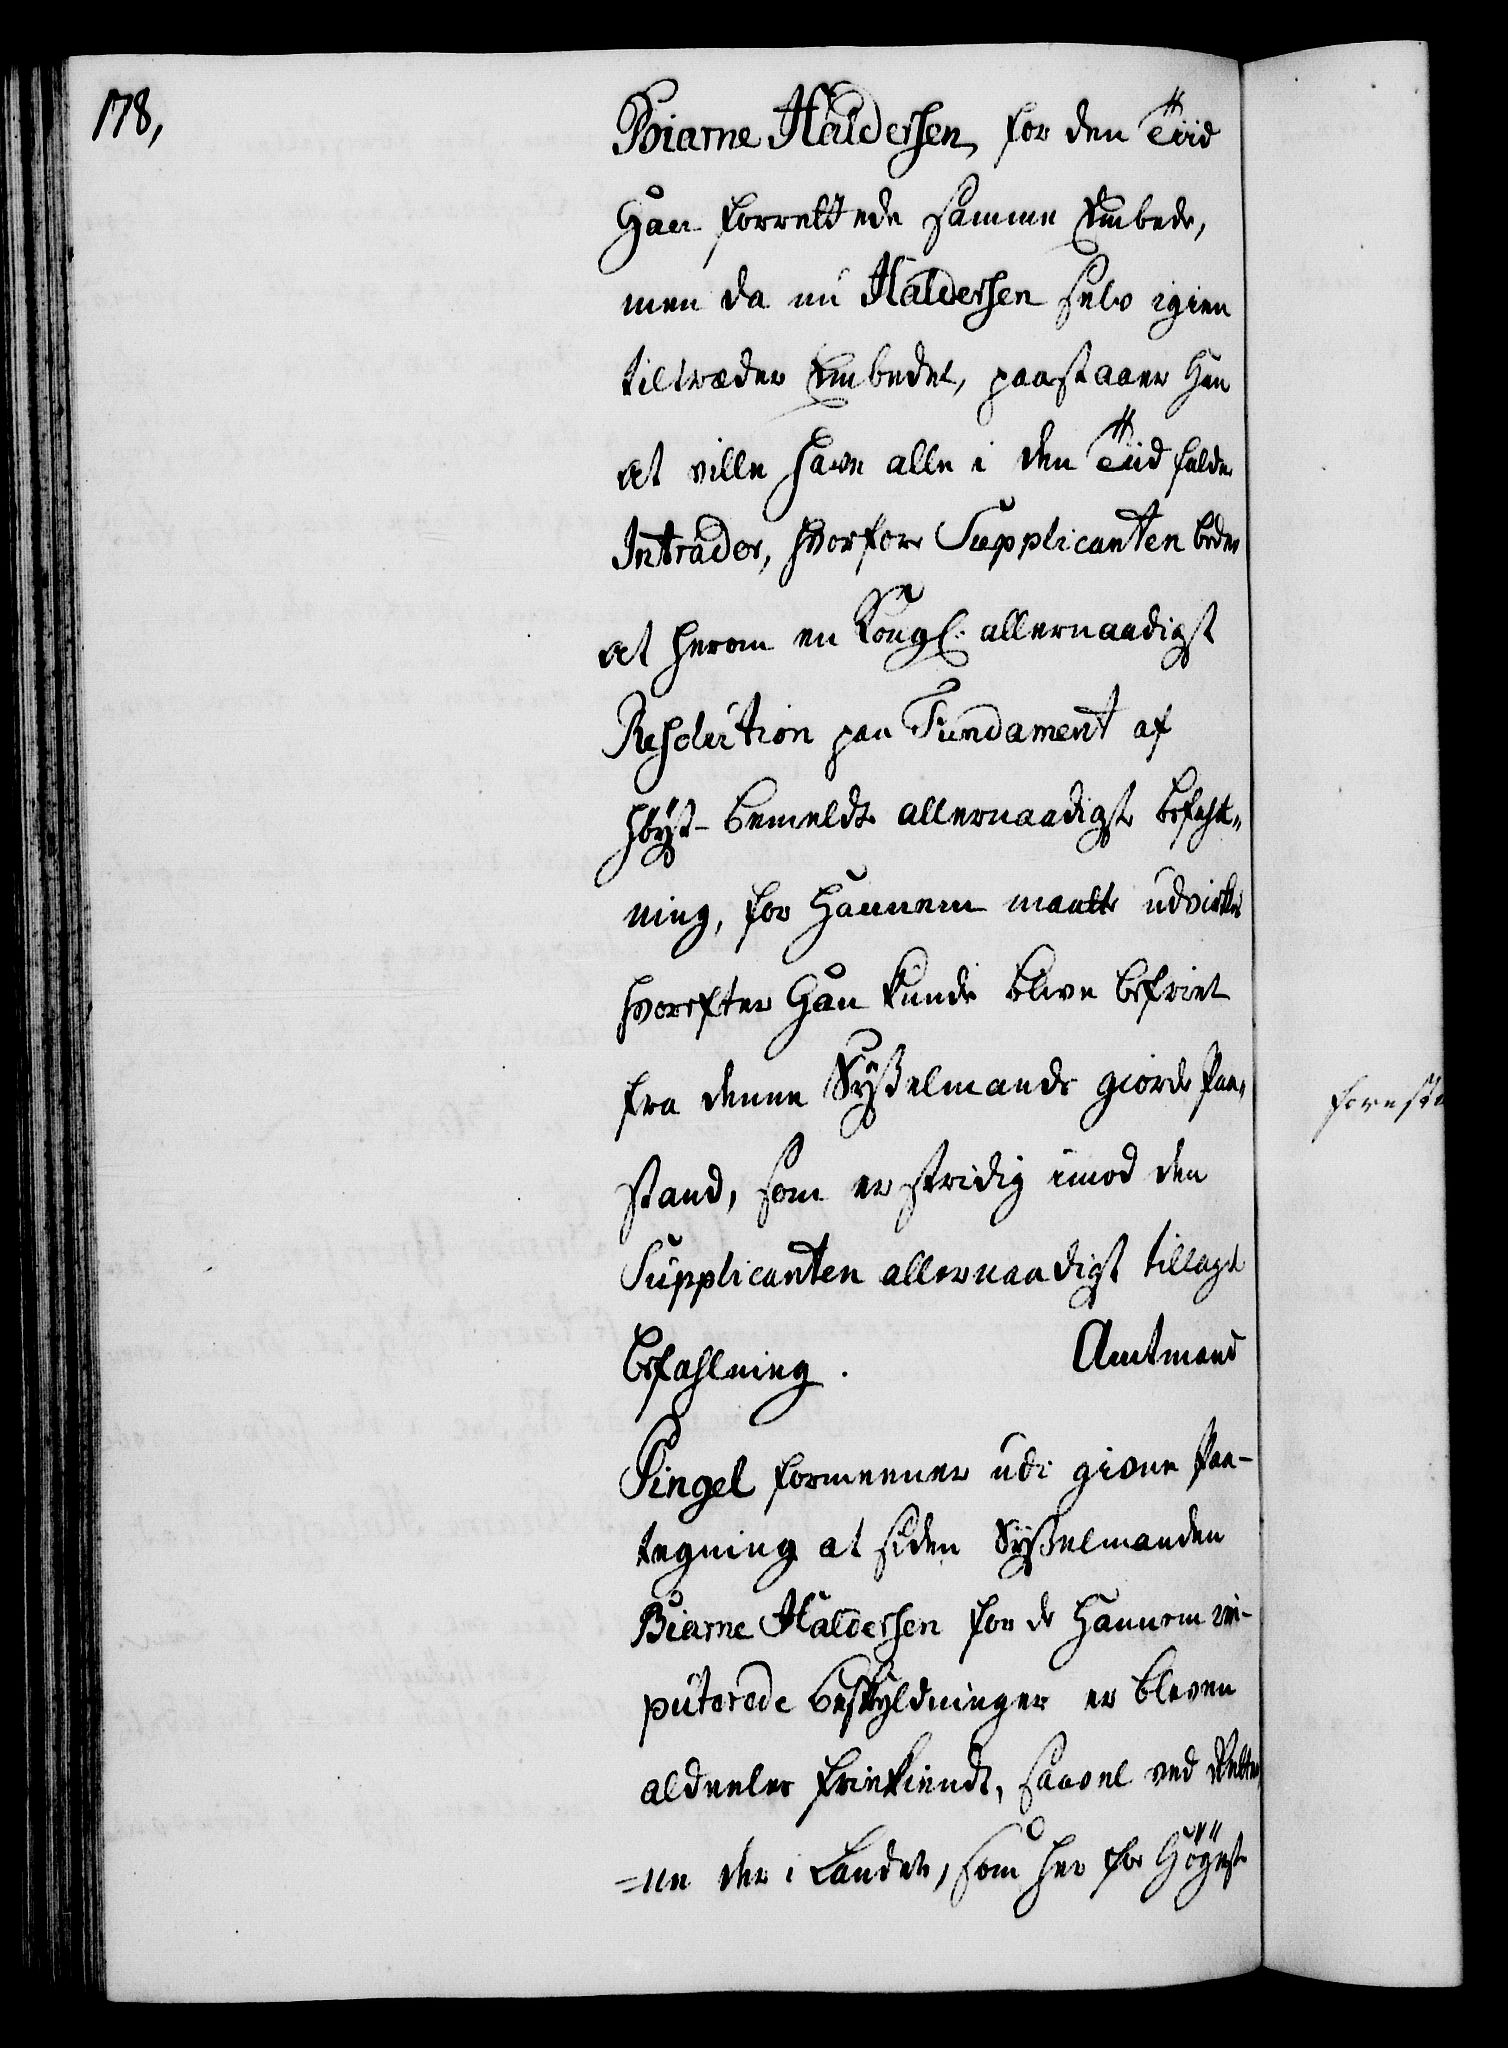 178,
Biarne Haldersen, for den Tiid
Han forrettede samme Embede,
men da nu Haldersen selv igien
tiltræder Embedet, paastaaer Han
at ville have alle i den Tiid faldne
Intrader, hvorfore Supplicanten beder
at herom en Kongl. allernaadigst
Resolution paa Fundament af
høyst-bemeldte allernaadigste befahl„
ning, for Hannem maatte udvirkes
hvorefter Han kunde blive befriet
fra denne Sysselmands giorde Paa„
stand, som er stridig imod den
Supplicanten allernaadigst tillagt
befahlning. Amtmand
Pingel formeener udi givne Paa-
tegning at siden Sysselmanden
Biarne Haldersen for de Hannem im-
puterede beskyldninger er bleven
aldeeles frikiendt, saavel ved Rette„
=ne der i Landet, som her for Høyeste